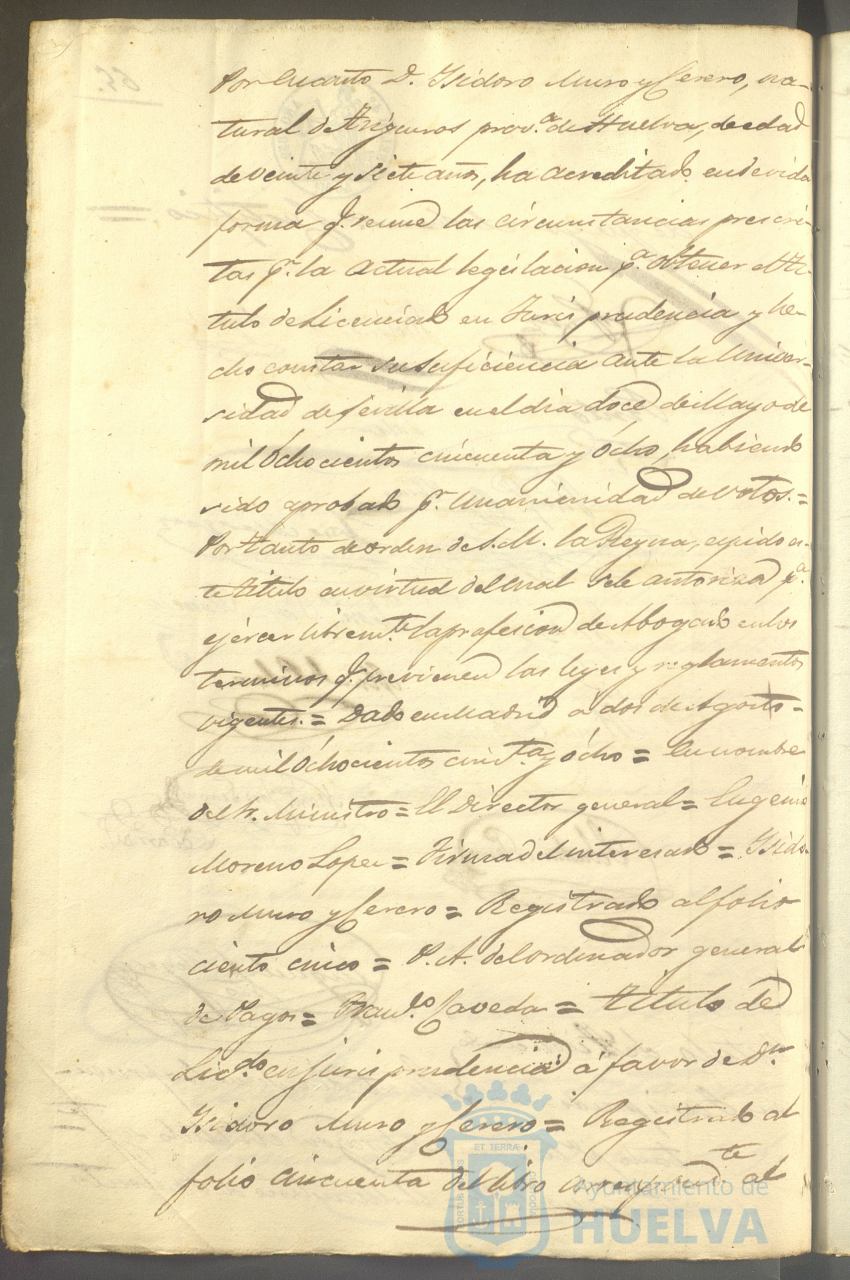 Por Cuanto D. Isidoro Muro y Cerero, na-
tural de Trigueros prov.ª de Huelva, de edad
de veinte y siete años, ha acreditado en devida
forma q.e reune las circunstancias prescri-
tas p.r la actual legislacion p.ª obtener el Ti-
tulo de Licenciado en Jurisprudencia y he-
cho constar su suficiencia ante la Univer-
sidad de Sevilla en el dia doce de Mayo de
mil óchocientos cincuenta y ócho, habiendo
sido aprobado p.r unanimidad de votos. =
Por tanto de orden de S. M. la Reyna, espido es-
te titulo en virtud del cual se le autoriza p.ª
ejércer librem.te la profesion de Abogado en los
terminos q.e previenen las leyes y reglamentos
vigentes. = Dado en Madrid á dos de Agosto =
de mil óchocientos cinc.ta y ócho = En nombre
del Sr. Ministro = El Director general = Eugenio
Moreno Lopez = Firma del interesado = Isido-
ro Muro y Cerero = Registrado al folio
ciento cinco = P. A. del ordenador general
de Pagos = Fran.co Caveda = Titulo de
Licdo. en Jurisprudencia á favor de Dn.
Isidoro Muro y Cerero = Registrado al
folio cincuenta del libro correspond.te al
ET TERRAE
Ayuntamiento de
HUELVA